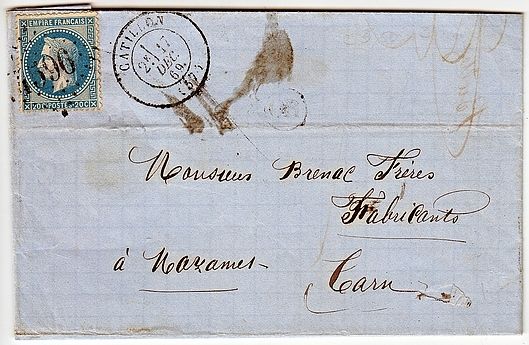 EMPIRE FRANÇAIS
896
20C POSTE 20C
CATILLON
2E 17
DEC
69
(57)
Monsieur Brenac Frères
Fabricants
à Mazamet
Tarn